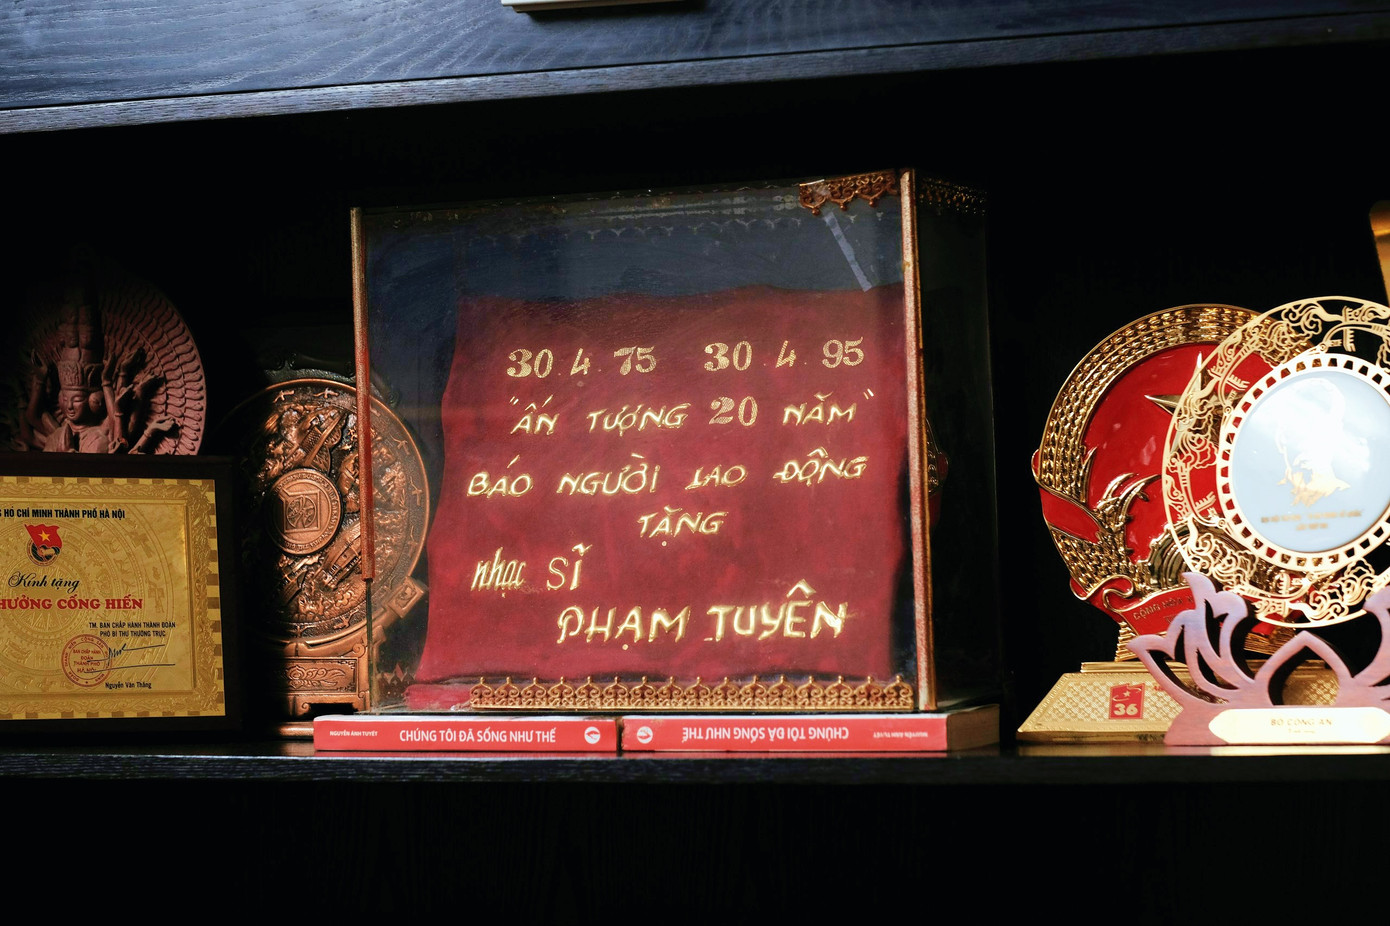 30.4.75 30.4.95
"ẤN TƯỢNG 20 NĂM"
BÁO NGƯỜI LAO ĐỘNG
TẶNG
nhạc SĨ
PHẠM TUYÊN
HỒ CHÍ MINH THÀNH PHỐ HÀ NỘI
Kính tặng
THƯỞNG CỐNG HIẾN
TM. BAN CHẤP HÀNH THÀNH ĐOÀN
PHÓ BÍ THƯ THƯỜNG TRỰC
BAN CHẤP HÀNH
ĐOÀN
THÀNH PHỐ
HÀ NỘI
Nguyễn Văn Thắng
NGUYỄN ÁNH TUYẾT CHÚNG TÔI ĐÃ SỐNG NHƯ THẾ
NGUYỄN ÁNH TUYẾT CHÚNG TÔI ĐÃ SỐNG NHƯ THẾ
36
BỘ CÔNG AN